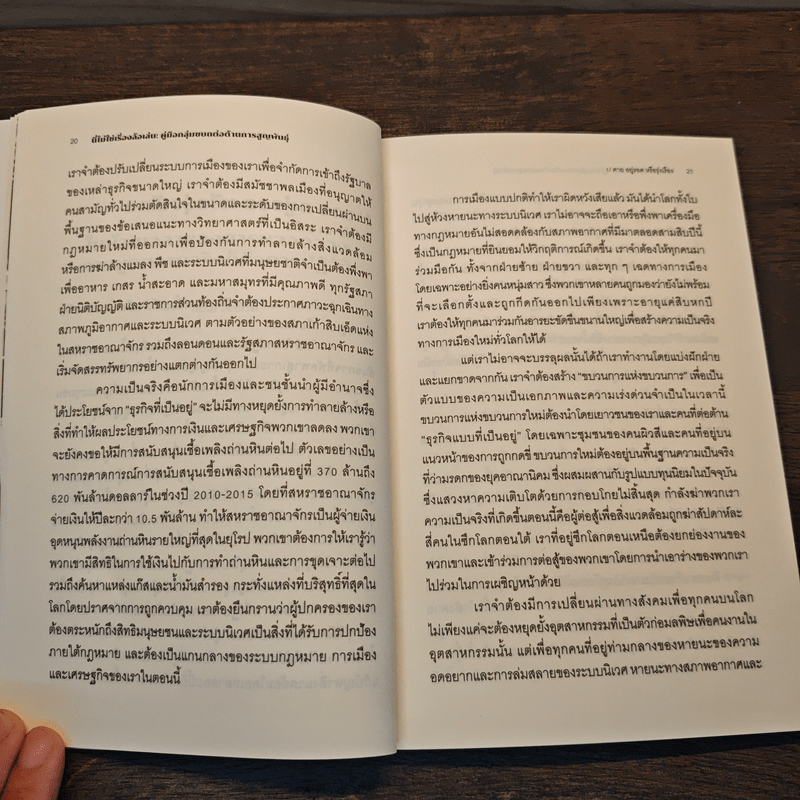 20 นี่ไม่ใช่เรื่องล้อเล่น: คู่มือกลุ่มขบถต่อต้านการสูญพันธุ์
เราจำต้องปรับเปลี่ยนระบบการเมืองของเราเพื่อจำกัดการเข้าถึงรัฐบาล
ของเหล่าธุรกิจขนาดใหญ่ เราจำต้องมีสมัชชาพลเมืองที่อนุญาตให้
คนสามัญทั่วไปร่วมตัดสินใจในขนาดและระดับของการเปลี่ยนผ่านบน
พื้นฐานของข้อเสนอแนะทางวิทยาศาสตร์ที่เป็นอิสระ เราจำต้องมี
กฎหมายใหม่ที่ออกมาเพื่อป้องกันการทำลายล้างสิ่งแวดล้อม
หรือการฆ่าล้างแมลง พืช และระบบนิเวศที่มนุษยชาติจำเป็นต้องพึ่งพา
เพื่ออาหาร เกสร น้ำสะอาด และมหาสมุทรที่มีคุณภาพดี ทุกรัฐสภา
ฝ่ายนิติบัญญัติ และราชการส่วนท้องถิ่นจำต้องประกาศภาวะฉุกเฉินทาง
สภาพภูมิอากาศและระบบนิเวศ ตามตัวอย่างของสภาเก้าสิบเอ็ดแห่ง
ในสหราชอาณาจักร รวมถึงลอนดอนและรัฐสภาสหราชอาณาจักร และ
เริ่มจัดสรรทรัพยากรอย่างแตกต่างกันออกไป
ความเป็นจริงคือนักการเมืองและชนชั้นนำผู้มีอำนาจซึ่ง
ได้ประโยชน์จาก “ธุรกิจที่เป็นอยู่” จะไม่มีทางหยุดยั้งการทำลายล้างหรือ
สิ่งที่ทำให้ผลประโยชน์ทางการเงินและเศรษฐกิจพวกเขาลดลง พวกเขา
จะยังคงขอให้มีการสนับสนุนเชื้อเพลิงถ่านหินต่อไป ตัวเลขอย่างเป็น
ทางการคาดการณ์การสนับสนุนเชื้อเพลิงถ่านหินอยู่ที่ 370 ล้านถึง
620 พันล้านดอลลาร์ในช่วงปี 2010-2015 โดยที่สหราชอาณาจักร
จ่ายเงินให้ปีละกว่า 10.5 พันล้าน ทำให้สหราชอาณาจักรเป็นผู้จ่ายเงิน
อุดหนุนพลังงานถ่านหินรายใหญ่ที่สุดในยุโรป พวกเขาต้องการให้เรารู้ว่า
พวกเขามีสิทธิในการใช้เงินไปกับการทำถ่านหินและการขุดเจาะต่อไป
รวมถึงค้นหาแหล่งแก๊สและน้ำมันสำรอง กระทั่งแหล่งที่บริสุทธิ์ที่สุดใน
โลกโดยปราศจากการถูกควบคุม เราต้องยืนกรานว่าผู้ปกครองของเรา
ต้องตระหนักถึงสิทธิมนุษยชนและระบบนิเวศเป็นสิ่งที่ได้รับการปกป้อง
ภายใต้กฎหมาย และต้องเป็นแกนกลางของระบบกฎหมาย การเมือง
และเศรษฐกิจของเราในตอนนี้
1/ ตาย อยู่รอด หรือรุ่งเรือง 21
การเมืองแบบปกติทำให้เราผิดหวังเสียแล้ว มันได้นำโลกทั้งใบ
ไปสู่ห้วงหายนะทางระบบนิเวศ เราไม่อาจจะถือเอาหรือพึ่งพาเครื่องมือ
ทางกฎหมายอันไม่สอดคล้องกับสภาพอากาศที่มีมาตลอดสามสิบปีนี้
ซึ่งเป็นกฎหมายที่ยินยอมให้วิกฤติการณ์เกิดขึ้น เราจำต้องให้ทุกคนมา
ร่วมมือกัน ทั้งจากฝ่ายซ้าย ฝ่ายขวา และทุก ๆ เฉดทางการเมือง
โดยเฉพาะอย่างยิ่งคนหนุ่มสาว ซึ่งพวกเขาหลายคนถูกมองว่ายังไม่พร้อม
ที่จะเลือกตั้งและถูกกีดกันออกไปเพียงเพราะอายุแค่สิบหกปี
เราต้องให้ทุกคนมาร่วมกันอารยะขัดขืนขนานใหญ่เพื่อสร้างความเป็นจริง
ทางการเมืองใหม่ทั่วโลกให้ได้
แต่เราไม่อาจจะบรรลุผลนั้นได้ถ้าเราทำงานโดยแบ่งฝักฝ่าย
และแยกขาดจากกัน เราจำต้องสร้าง “ขบวนการแห่งขบวนการ” เพื่อเป็น
ตัวแบบของความเป็นเอกภาพและความเร่งด่วนจำเป็นในเวลานี้
ขบวนการแห่งขบวนการใหม่ต้องนำโดยเยาวชนของเราและคนที่ต่อต้าน
“ธุรกิจแบบที่เป็นอยู่” โดยเฉพาะชุมชนของคนผิวสีและคนที่อยู่บน
แนวหน้าของการถูกกดขี่ ขบวนการใหม่ต้องอยู่บนพื้นฐานความเป็นจริง
ที่ว่ามรดกของยุคอาณานิคม ซึ่งผสมผสานกับรูปแบบทุนนิยมในปัจจุบัน
ซึ่งแสวงหาความเติบโตด้วยการกอบโกยไม่สิ้นสุด กำลังฆ่าพวกเรา
ความเป็นจริงที่เกิดขึ้นตอนนี้คือผู้ต่อสู้เพื่อสิ่งแวดล้อมถูกฆ่าสัปดาห์ละ
สี่คนในซีกโลกตอนใต้ เราที่อยู่ซีกโลกตอนเหนือต้องยกย่องงานของ
พวกเขาและเข้าร่วมการต่อสู้ของพวกเขาโดยการนำเอาร่างของพวกเรา
ไปร่วมในการเผชิญหน้าด้วย
เราจำต้องมีการเปลี่ยนผ่านทางสังคมเพื่อทุกคนบนโลก
ไม่เพียงแค่จะต้องหยุดยั้งอุตสาหกรรมที่เป็นตัวก่อมลพิษเพื่อคนงานใน
อุตสาหกรรมนั้น แต่เพื่อทุกคนที่อยู่ท่ามกลางหายนะของความ
อดอยากและการล่มสลายของระบบนิเวศ หายนะทางสภาพอากาศและ